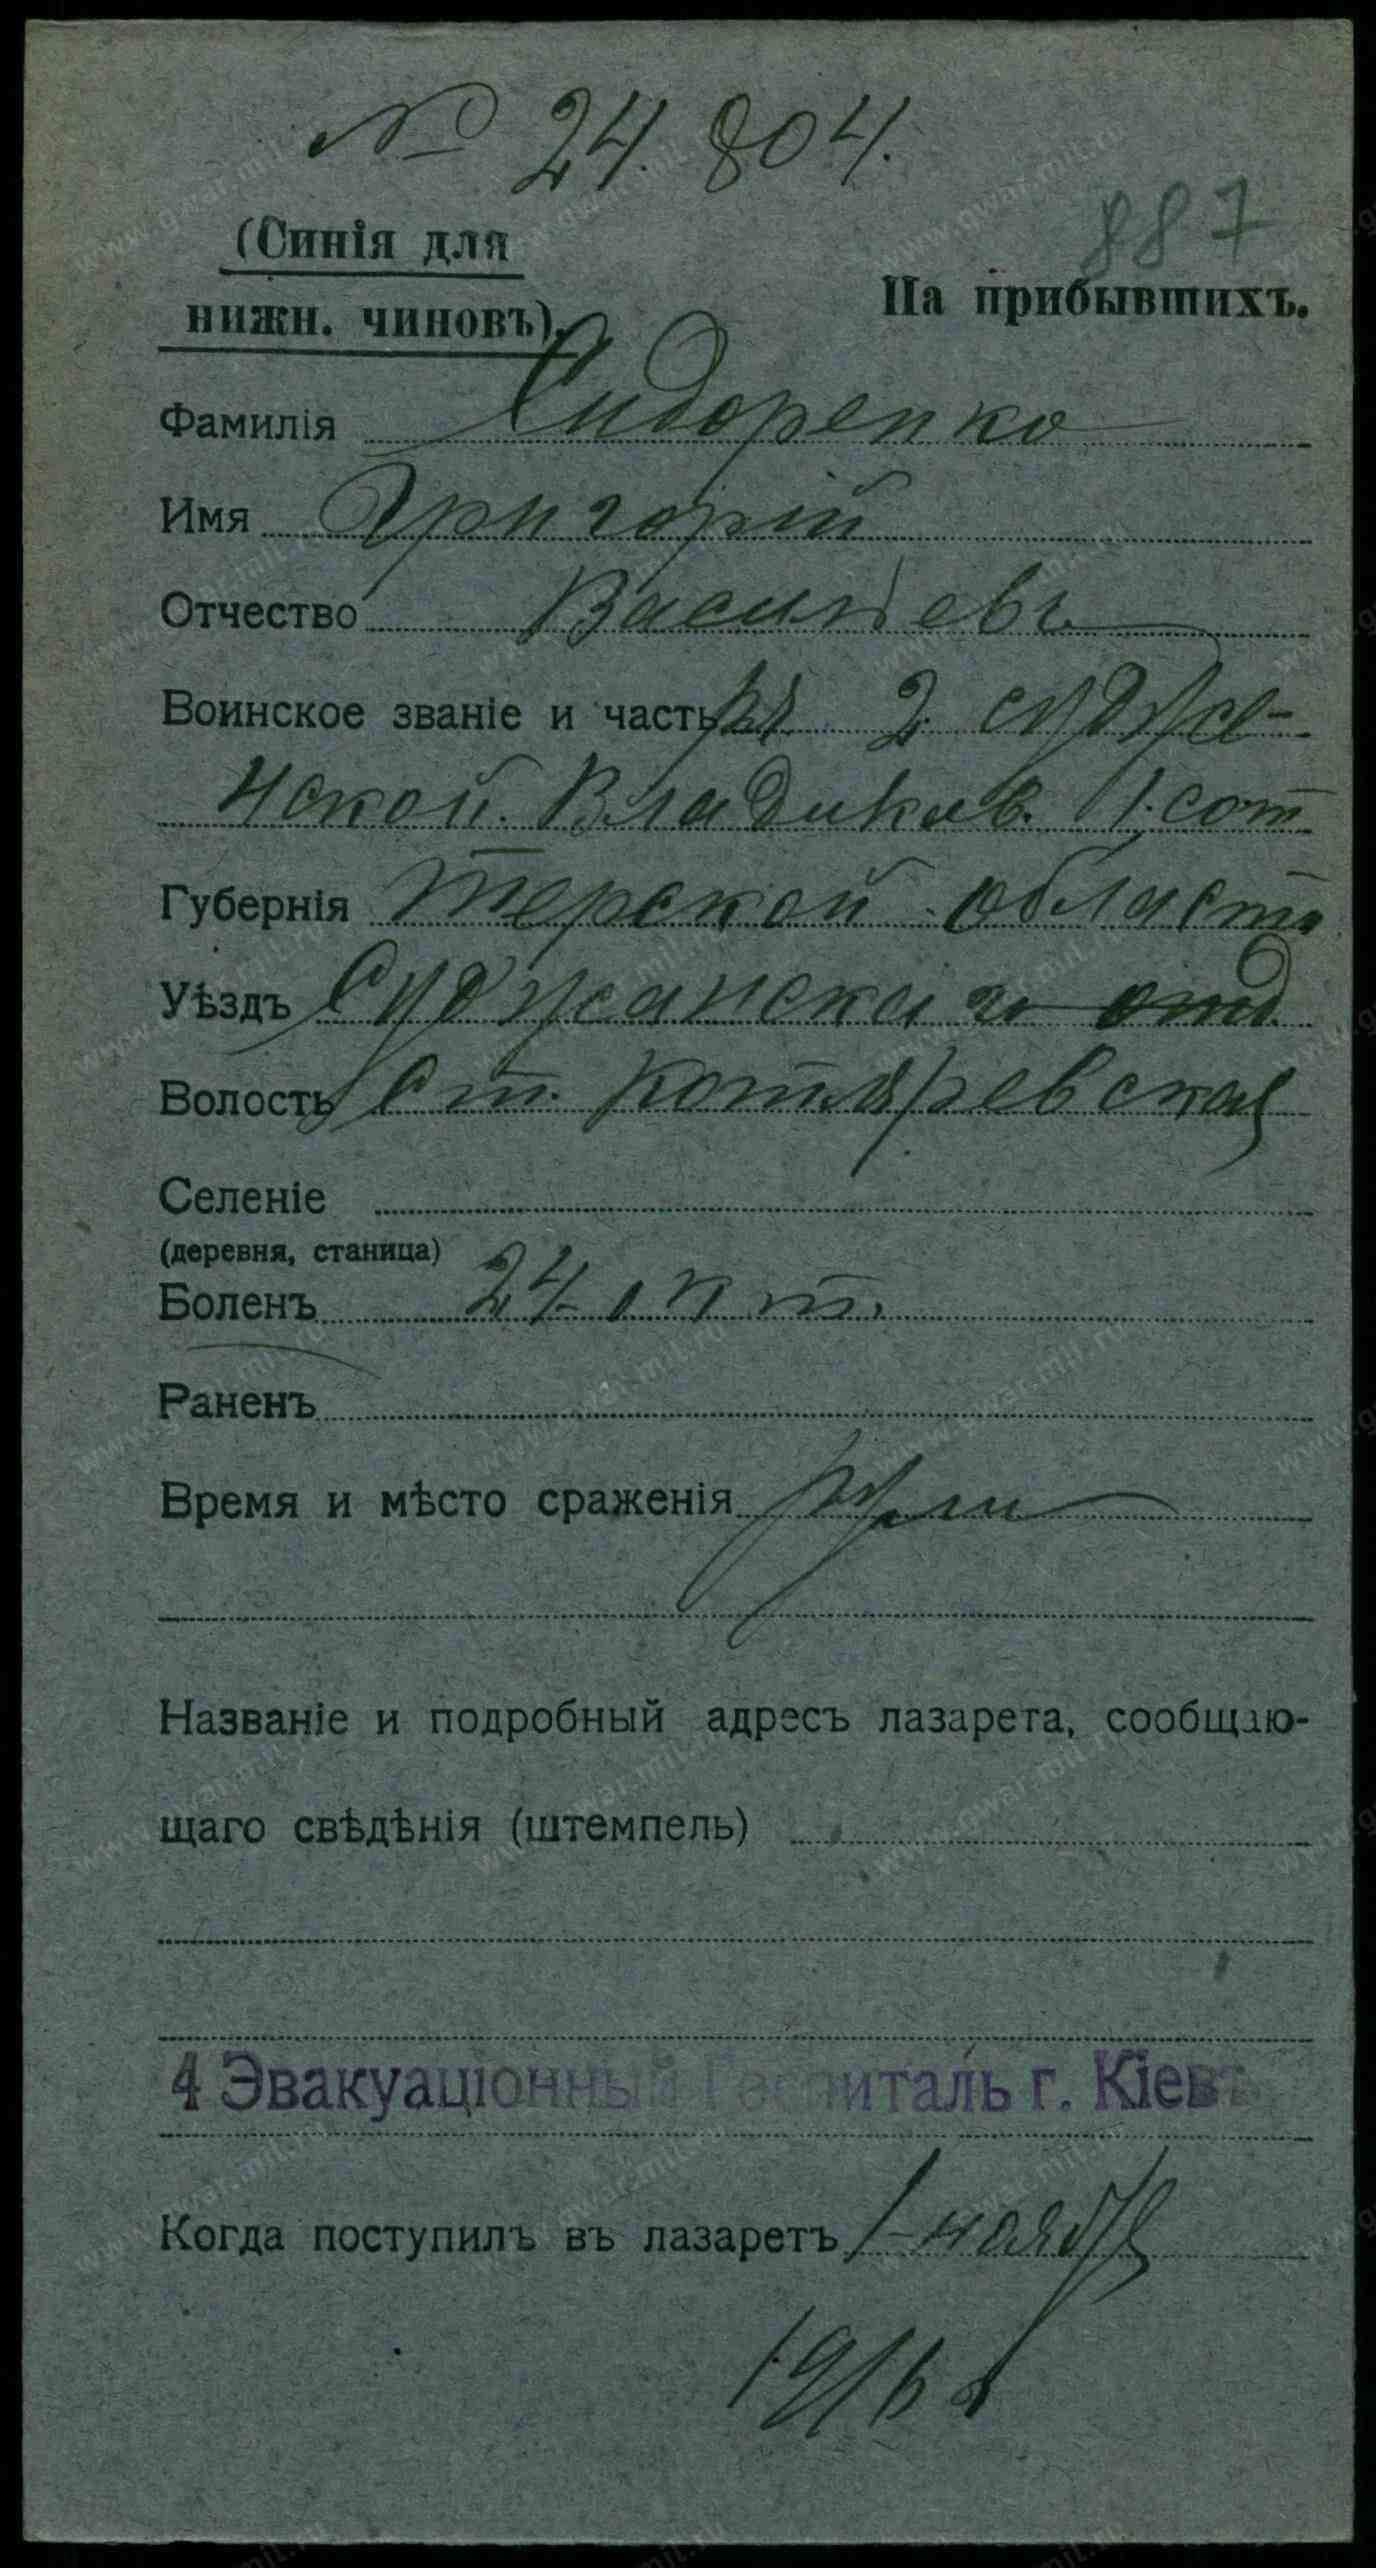 № 24.804.
887
(Синія для
нижн. чиновъ).
На прибывшихъ.
Фамилія Сидоренко
Имя Григорій
Отчество Васильевъ
Воинское званіе и часть 2 сунже-
нской. Владикав. 1. сот
Губернія Терской област
Уѣздъ Сунжанскаго отд
Волость ст. Котляревская
Селеніе
(деревня, станица)
Боленъ 24 окт.
Раненъ
Время и мѣсто сраженія
Названіе и подробный адресъ лазарета, сообщаю-
щаго свѣдѣнія (штемпель)
4 Эвакуаціонный Госпиталь г. Кіевъ
Когда поступилъ въ лазаретъ 1 ноября
1916
www.gwar.mil.ru